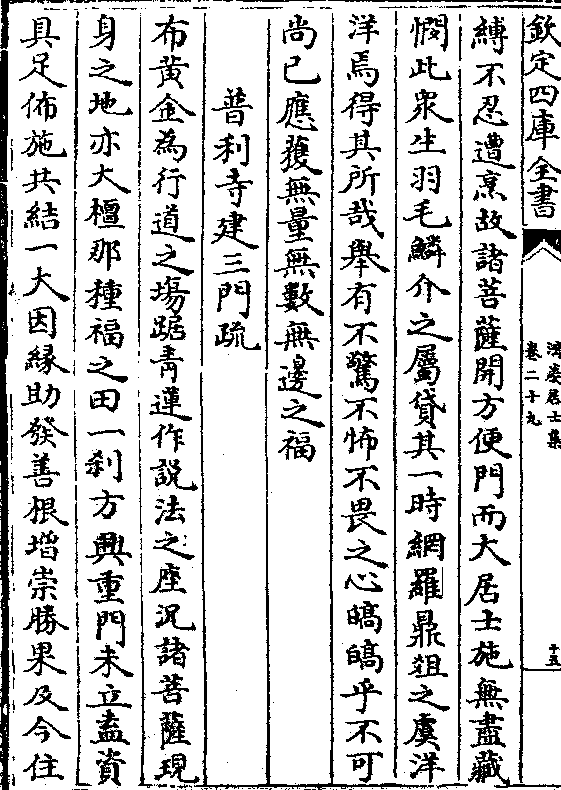 欽定四庫全書
濟娄居士集
卷二十九
十五
縛不忍遭烹故諸菩薩開方便門而大居士施無盡藏
憫此衆生羽毛鱗介之屬貸其一時網羅鼎俎之虞洋
洋焉得其所哉舉有不驚不怖不畏之心皜皜乎不可
尚已應獲無量無數無邊之福
普利寺建三門疏
布黄金為行道之場踞青蓮作說法之座況諸菩薩現
身之地亦大檀那種福之田一刹方興重門未立盍資
具足佈施共結一大因緣助發善根增崇勝果及今住